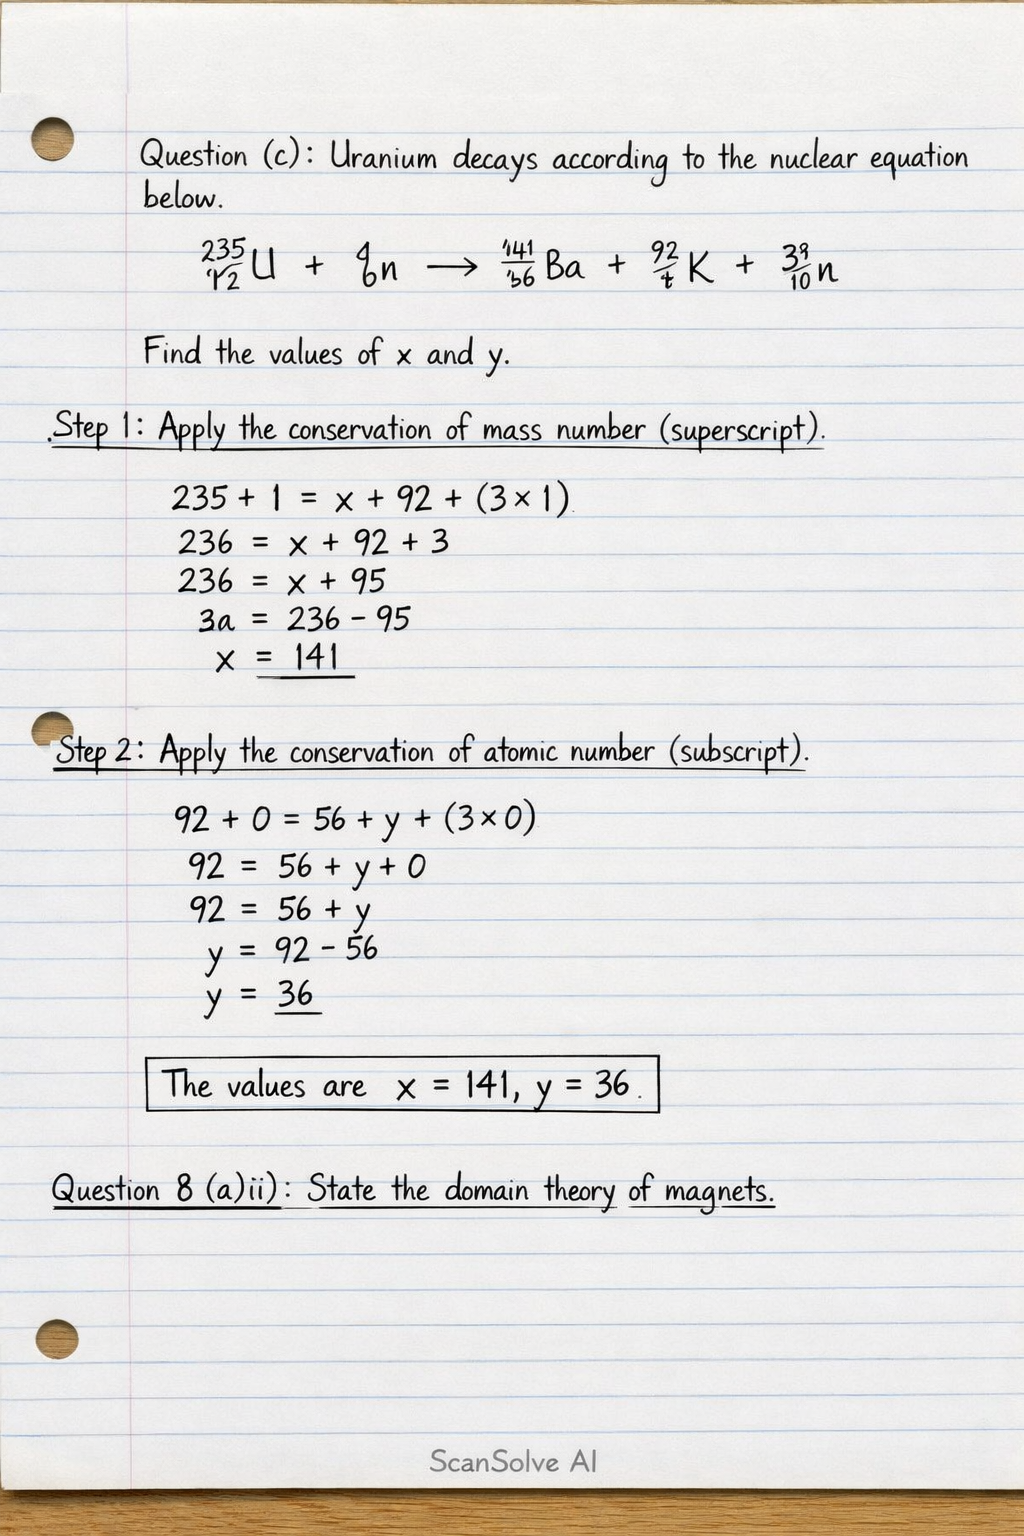 Question (c): Uranium decays according to the nuclear equation
below.
235 U + n → 141 Ba + 92 K + n
Find the values of x and y.
Step 1: Apply the conservation of mass number (superscript).
235 + 1 = x + 92 + (3 × 1)
236 = x + 92 + 3
236 = x + 95
3a = 236 - 95
x = 141
Step 2: Apply the conservation of atomic number (subscript).
92 + 0 = 56 + y + (3 × 0)
92 = 56 + y + 0
92 = 56 + y
y = 92 - 56
y = 36
The values are x = 141, y = 36.
Question 8 (a)ii): State the domain theory of magnets.
ScanSolve AI